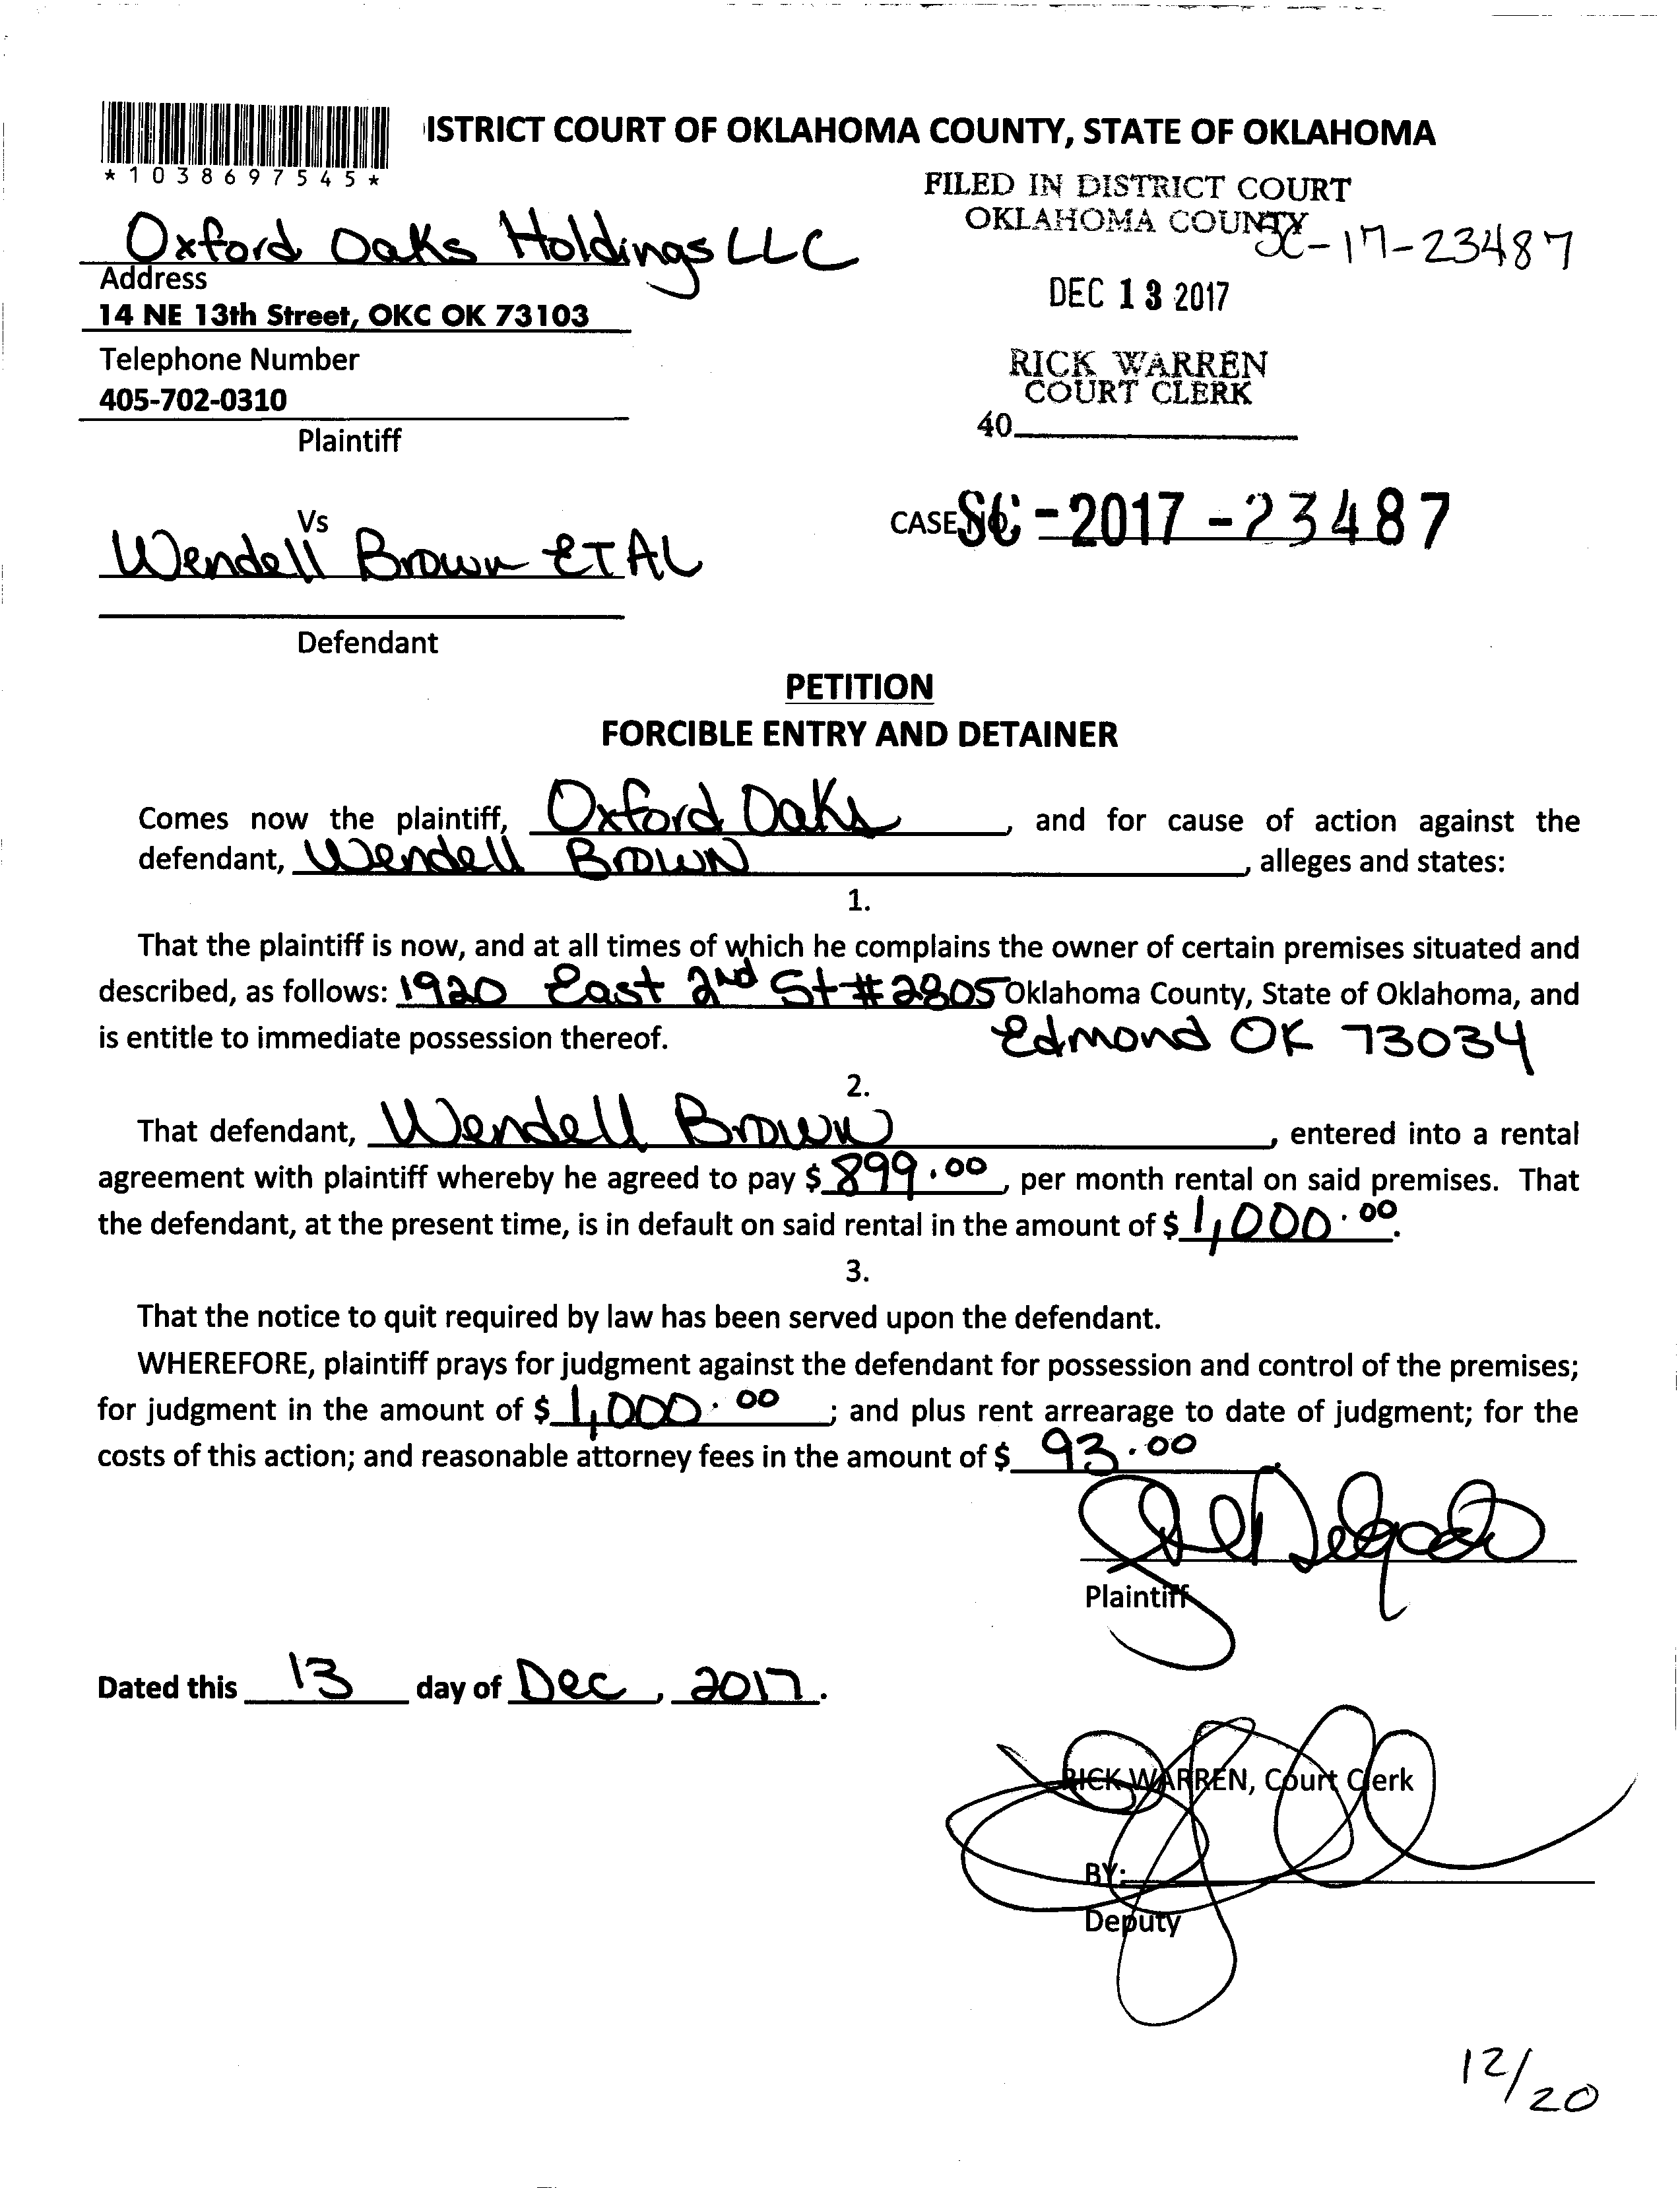 ISTRICT COURT OF OKLAHOMA COUNTY, STATE OF OKLAHOMA
*1038697545*
FILED IN DISTRICT COURT
OKLAHOMA COUNTY
SC-17-23487
Oxford Oaks Holdings LLC
Address
14 NE 13th Street, OKC OK 73103
DEC 13 2017
Telephone Number
405-702-0310
RICK WARREN
COURT CLERK
40
Plaintiff
Vs
CASE NO. SC-2017-23487
Wendell Brown ET AL
Defendant
PETITION
FORCIBLE ENTRY AND DETAINER
Comes now the plaintiff, Oxford Oaks, and for cause of action against the
defendant, Wendell Brown, alleges and states:
1.
That the plaintiff is now, and at all times of which he complains the owner of certain premises situated and
described, as follows: 1920 East 2nd St #2805 Oklahoma County, State of Oklahoma, and
is entitle to immediate possession thereof. Edmond OK 73034
2.
That defendant, Wendell Brown, entered into a rental
agreement with plaintiff whereby he agreed to pay $ 899.00, per month rental on said premises. That
the defendant, at the present time, is in default on said rental in the amount of $ 1,000.00.
3.
That the notice to quit required by law has been served upon the defendant.
WHEREFORE, plaintiff prays for judgment against the defendant for possession and control of the premises;
for judgment in the amount of $ 1,000.00; and plus rent arrearage to date of judgment; for the
costs of this action; and reasonable attorney fees in the amount of $ 93.00
Plaintiff
Dated this 13 day of Dec, 2017.
RICK WARREN, Court Clerk
BY:
Deputy
12/20